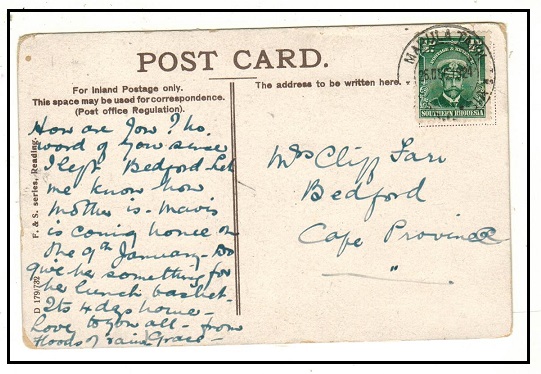 POST CARD.
For Inland Postage only.
This space may be used for correspondence.
(Post office Regulation).
The address to be written here.
How are you? No
word of you since
I left Bedford. Let
me know how
mother is - Mavis
is coming home on
the 9th January - Do
give her something for
her lunch basket -
2 to 4 days home -
Love to you all - from
Floods of rain Grace -
Mrs Cliff Farr
Bedford
Cape Province
"
F. & S. series, Reading.
D 179/732
SOUTHERN RHODESIA